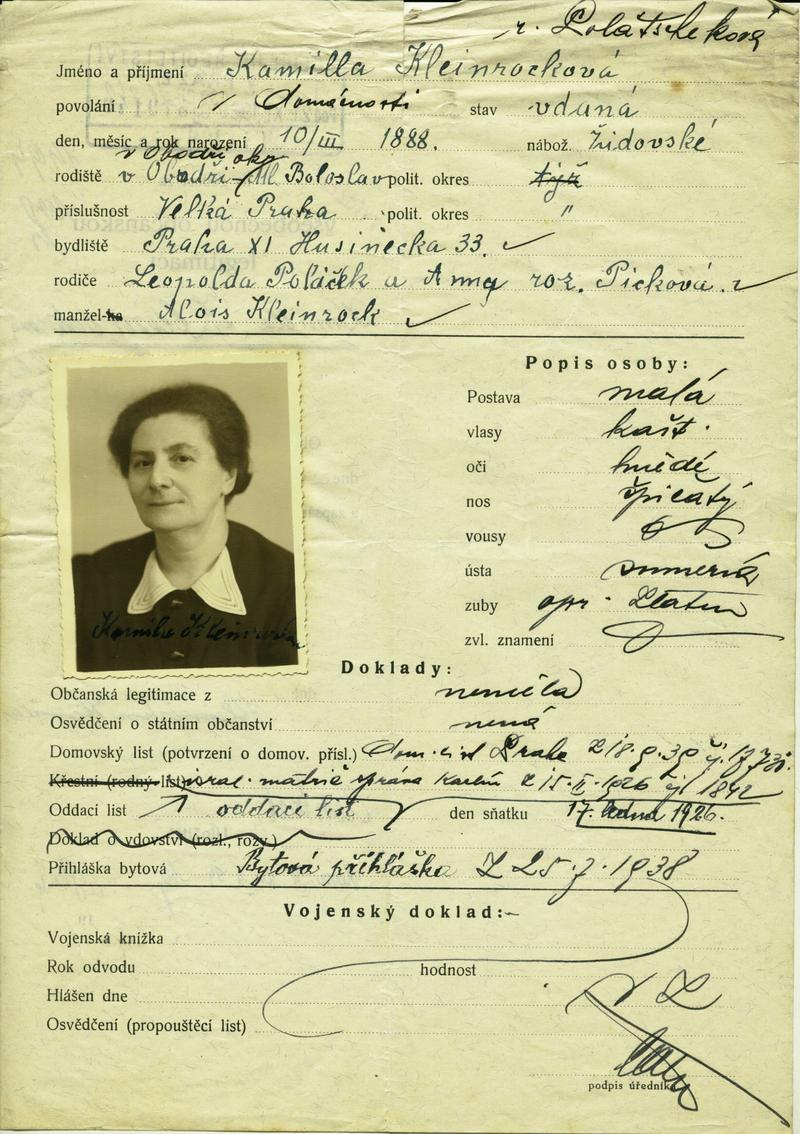 r. Polátscheková
Jméno a příjmení Kamilla Kleinrocková
povolání v domácnosti stav vdaná
den, měsíc a rok narození 10/III 1888. nábož. židovské
v Obodři okr
rodiště v Obodři Ml Boloslav polit. okres týž
příslušnost Velká Praha polit. okres "
bydliště Praha XI Husinecka 33.
rodiče Leopolda Poláček a Anny roz. Picková.
manžel-ka Alois Kleinrock
Popis osoby:
Postava malá
vlasy kašt.
oči hnědé
nos špičatý
vousy
ústa souměrná
zuby opr.
zvl. znamení
Kamila Kleinrocková
Doklady:
Občanská legitimace z neměla
Osvědčení o státním občanství nemá
Domovský list (potvrzení o domov. přísl.) Dom. list Praha
Křestní (rodný list) matrič správa Karlín z 15. II. 1926 čj 1842
Oddací list oddací list den sňatku 17. ledna 1926.
Doklad o vdovství (rozl., rozv.)
Přihláška bytová Bytová přihláška z 25. 7. 1938
Vojenský doklad:
Vojenská knížka
Rok odvodu hodnost
Hlášen dne
Osvědčení (propouštěcí list)
podpis úředníka